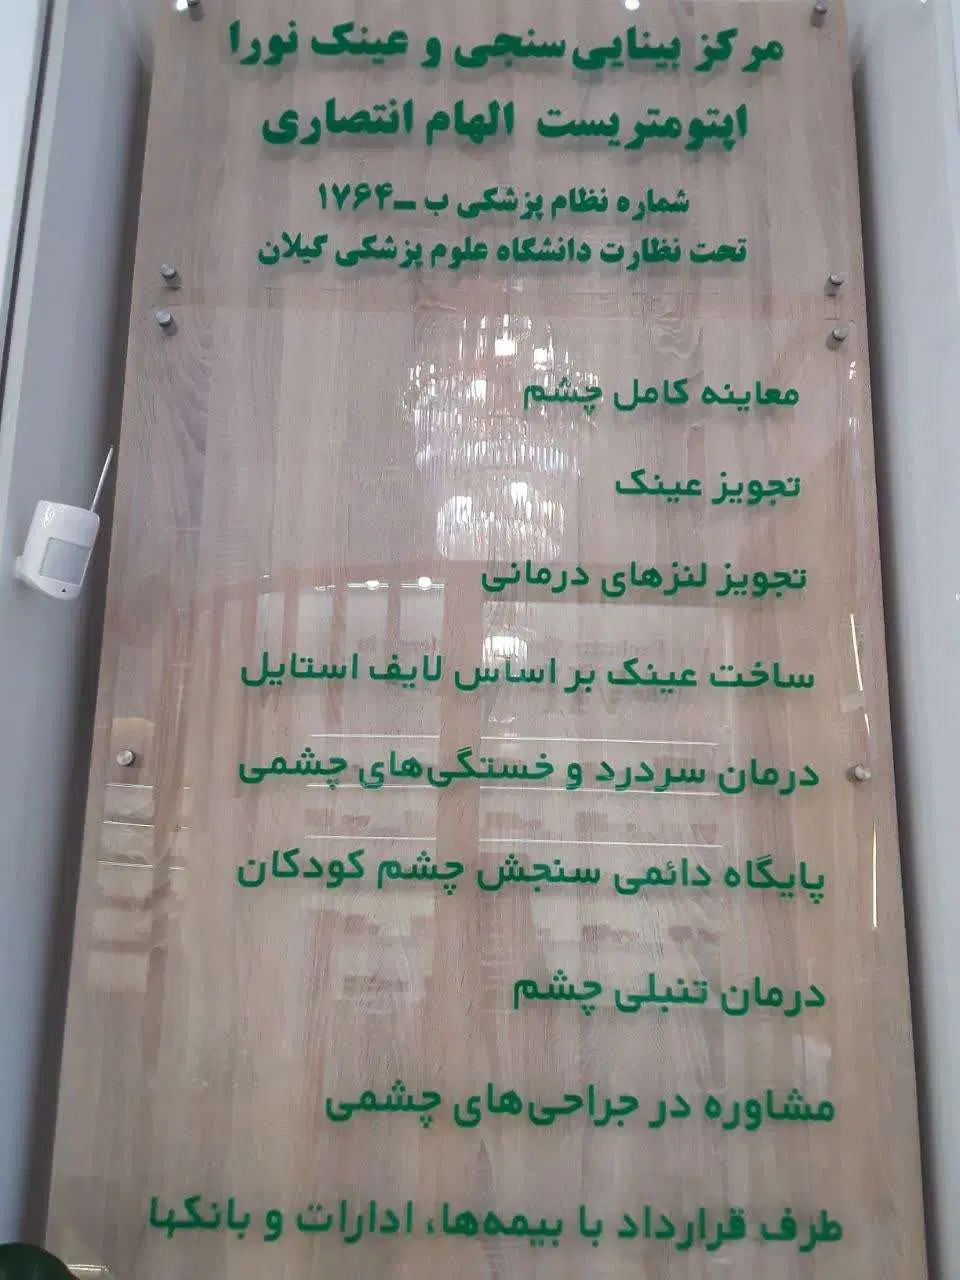 مرکز بینایی سنجی و عینک نورا
اپتومتریست الهام انتصاری
شماره نظام پزشکی ب ـ ۱۷۶۴
تحت نظارت دانشگاه علوم پزشکی گیلان
معاینه کامل چشم
تجویز عینک
تجویز لنزهای درمانی
ساخت عینک بر اساس لایف استایل
درمان سردرد و خستگی‌های چشمی
پایگاه دائمی سنجش چشم کودکان
درمان تنبلی چشم
مشاوره در جراحی‌های چشمی
طرف قرارداد با بیمه‌ها، ادارات و بانکها